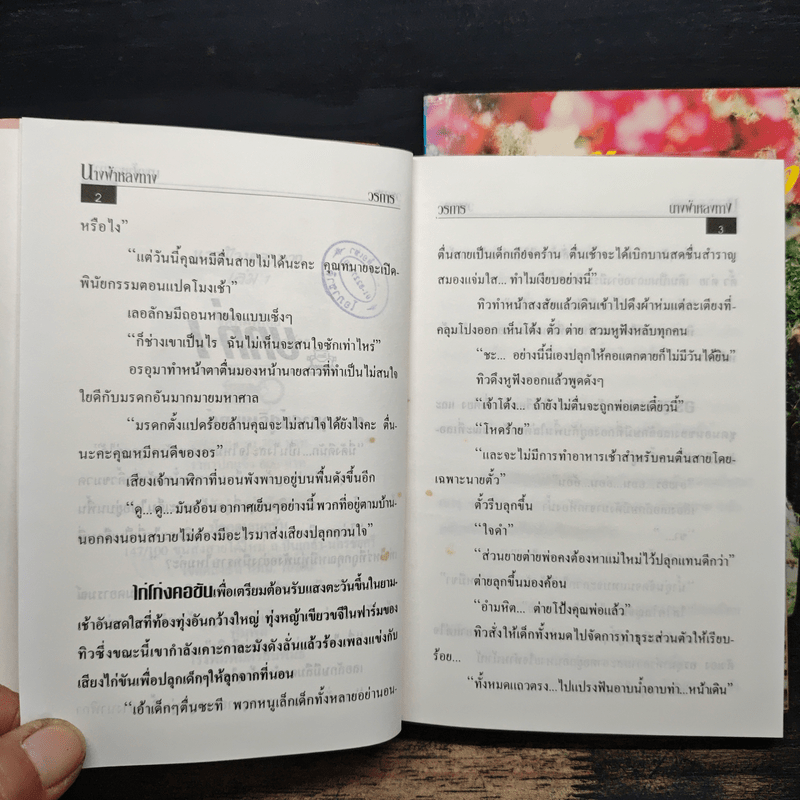 นางฟ้าหลงทาง
2
วรการ
หรือไง”
“แต่วันนี้คุณหมีตื่นสายไม่ได้นะคะ คุณทนายจะเปิด-
พินัยกรรมตอนแปดโมงเช้า”
เลอลักษมีถอนหายใจแบบเซ็งๆ
“ก็ช่างเขาเป็นไร ฉันไม่เห็นจะสนใจซักเท่าไหร่”
อรอุมาทำหน้าตาตื่นมองหน้านายสาวที่ทำเป็นไม่สนใจ
ใยดีกับมรดกอันมากมายมหาศาล
“มรดกตั้งแปดร้อยล้านคุณจะไม่สนใจได้ยังไงคะ ตื่น-
นะคะคุณหมีคนดีของอร”
เสียงเจ้านาฬิกาที่นอนพังพาบอยู่บนพื้นดังขึ้นอีก
“ดู...ดู...มันอ้อน อากาศเย็นๆอย่างนี้ พวกที่อยู่ตามบ้าน-
นอกคงนอนสบายไม่ต้องมีอะไรมาส่งเสียงปลุกกวนใจ”
ไก่โก่งคอขันเพื่อเตรียมต้อนรับแสงตะวันขึ้นในยาม-
เช้าอันสดใสที่ท้องทุ่งอันกว้างใหญ่ ทุ่งหญ้าเขียวขจีในฟาร์มของ
ทิวซึ่งขณะนี้เขากำลังเคาะกาละมังดังลั่นแล้วร้องเพลงแข่งกับ
เสียงไก่ขันเพื่อปลุกเด็กๆให้ลุกจากที่นอน
“เอ้าเด็กๆตื่นซะที พวกหนูเล็กเด็กทั้งหลายอย่านอน-
วรการ
นางฟ้าหลงทาง
3
ตื่นสายเป็นเด็กเกียจคร้าน ตื่นเช้าจะได้เบิกบานสดชื่นสำราญ
สมองแจ่มใส... ทำไมเงียบอย่างนี้”
ทิวทำหน้าสงสัยแล้วเดินเข้าไปดึงผ้าห่มแต่ละเตียงที่-
คลุมโปงออก เห็นโต้ง ตั้ว ต่าย สวมหูฟังหลับทุกคน
“ชะ... อย่างนี้นี่เองปลุกให้คอแตกตายก็ไม่มีวันได้ยิน”
ทิวดึงหูฟังออกแล้วพูดดังๆ
“เจ้าโต้ง... ถ้ายังไม่ตื่นจะถูกพ่อเตะเดี๋ยวนี้”
“โหดร้าย”
“และจะไม่มีการทำอาหารเช้าสำหรับคนตื่นสายโดย-
เฉพาะนายตั้ว”
ตั้วรีบลุกขึ้น
“ใจดำ”
“ส่วนยายต่ายพ่อคงต้องหาแม่ใหม่ไว้ปลุกแทนดีกว่า”
ต่ายลุกขึ้นมองค้อน
“อำมหิต... ต่ายโป้งคุณพ่อแล้ว”
ทิวสั่งให้เด็กทั้งหมดไปจัดการทำธุระส่วนตัวให้เรียบ-
ร้อย...
“ทั้งหมดแถวตรง...ไปแปรงฟันอาบน้ำอาบท่า...หน้าเดิน”